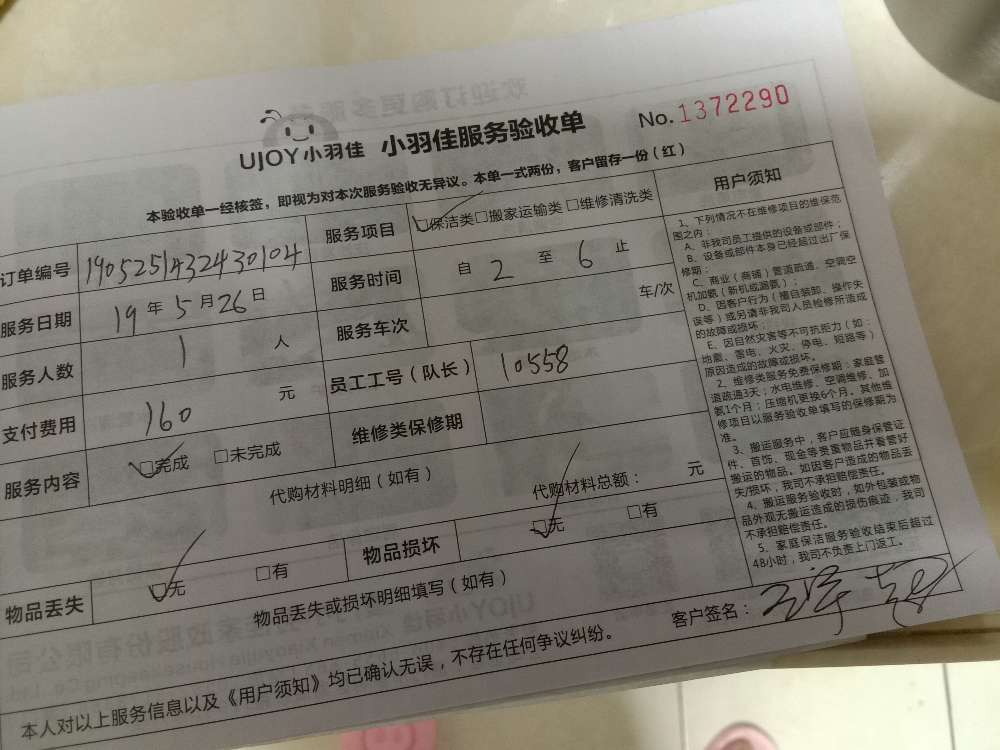 UJOY小羽佳 小羽佳服务验收单 No.1372290
本验收单一经核签，即视为对本次服务验收无异议。本单一式两份，客户留存一份（红）
订单编号 190525143243 0104 服务项目 □保洁类□搬家运输类 □维修清洗类
服务日期 19年5月26日 服务时间 自 2 至 6 止
服务人数 1 人 服务车次 车/次
支付费用 160 元 员工工号（队长） 10558
服务内容 □完成 □未完成 维修类保修期
代购材料明细（如有） 代购材料总额： 元
物品丢失 □无 □有 物品损坏 □无 □有
物品丢失或损坏明细填写（如有）
本人对以上服务信息以及《用户须知》均已确认无误，不存在任何争议纠纷。
客户签名：
用户须知
1、下列情况不在维修项目的维保范
围之内：
A、非我司员工提供的设备或部件；
B、设备或部件本身已经超过出厂保
修期；
C、商业（商铺）管道疏通、空调空
机加氨（新机或漏氨）；
D、因客户行为（擅自装卸、操作失
误等）或另请非我司人员检修所造成
的故障或损坏；
E、因自然灾害等不可抗拒力（如：
地震、雷电、火灾、停电、短路等）
原因造成的故障或损坏。
2、维修类服务免费保修期：家庭管
道疏通3天；水电维修、空调维修、加
氨1个月；压缩机更换6个月。其他维
修项目以服务验收单填写的保修期为
准。
3、搬运服务中，客户应随身保管证
件、首饰、现金等贵重物品并看管好
搬运的物品。如因客户造成的物品丢
失/损坏，我司不承担赔偿责任。
4、搬运服务验收时，如外包装或物
品外观无搬运造成的损伤痕迹，我司
不承担赔偿责任。
5、家庭保洁服务验收结束后超过
48小时，我司不负责上门返工。